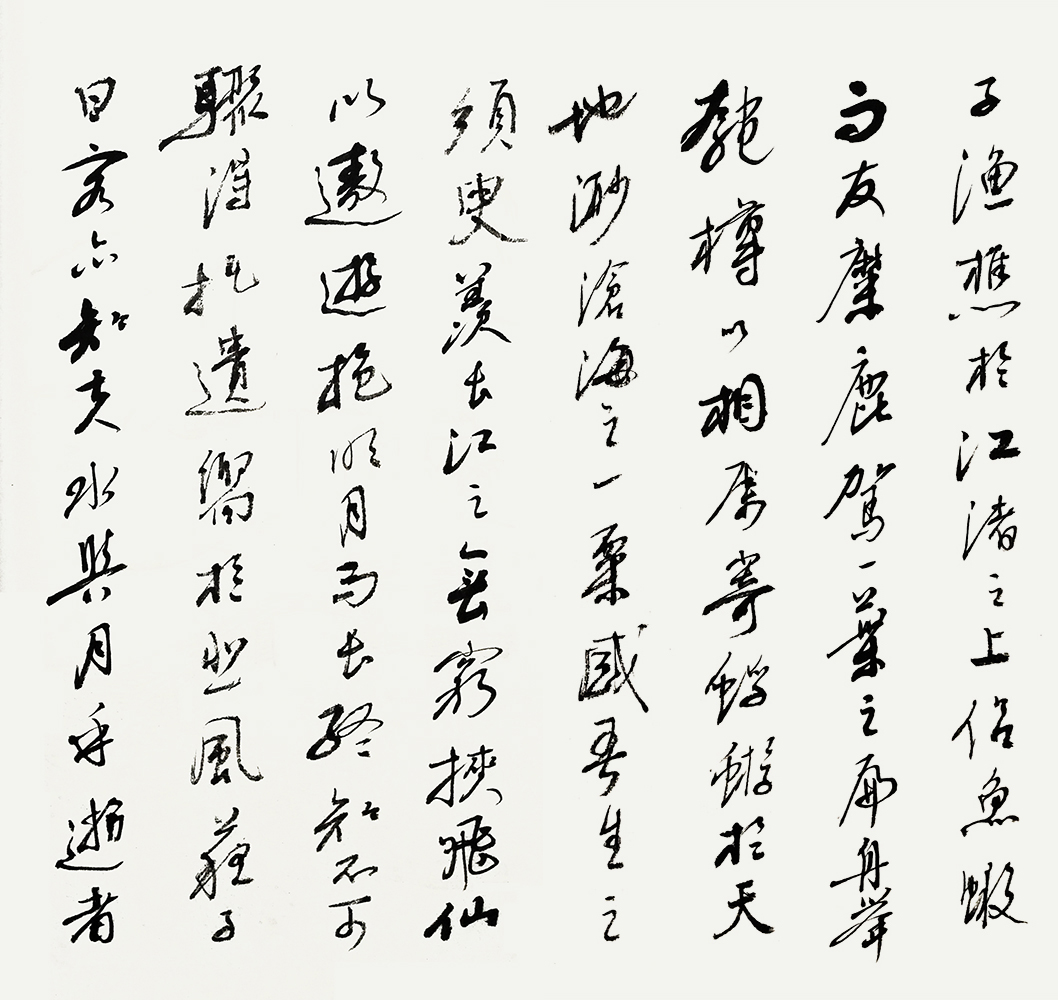 子漁樵於江渚之上侶魚蝦
而友麋鹿駕一葉之扁舟舉
匏樽以相属寄蜉蝣於天
地渺滄海之一粟感吾生之
須臾羨長江之無窮挾飛仙
以遨遊抱明月而長終知不可
驟得托遺響於悲風蘇子
曰客亦知夫水與月乎逝者